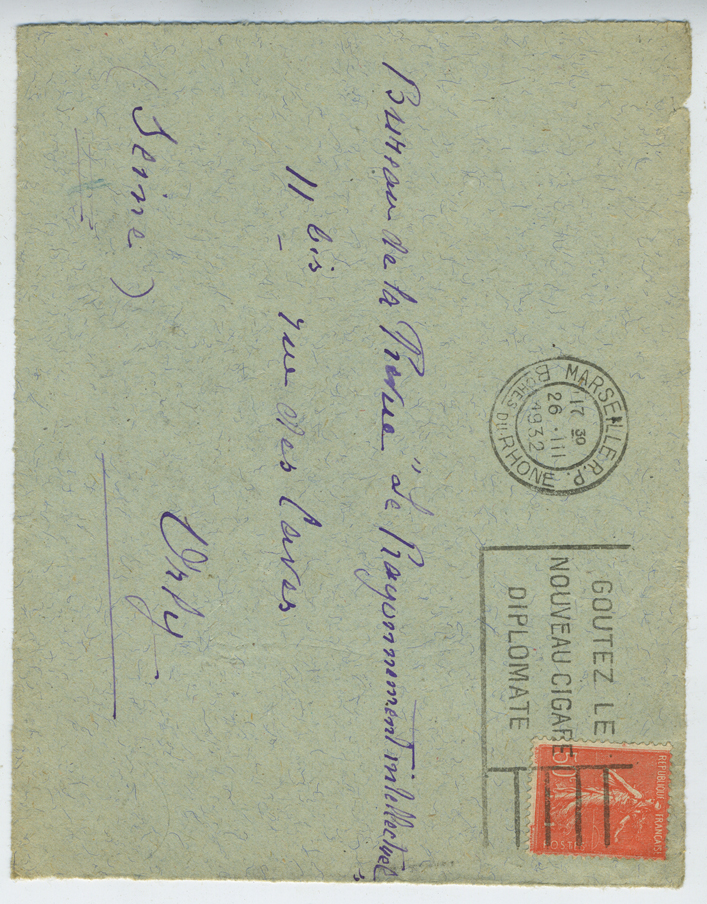 MARSEILLE R.P.
17 30
26 · III
1932
BCHES DU RHONE
GOUTEZ LE
NOUVEAU CIGARE
DIPLOMATE
REPUBLIQUE FRANÇAISE
50
POSTES
Bureau de la Revue "Le Rayonnement intellectuel"
11 bis rue des Caves
Orly
(Seine)